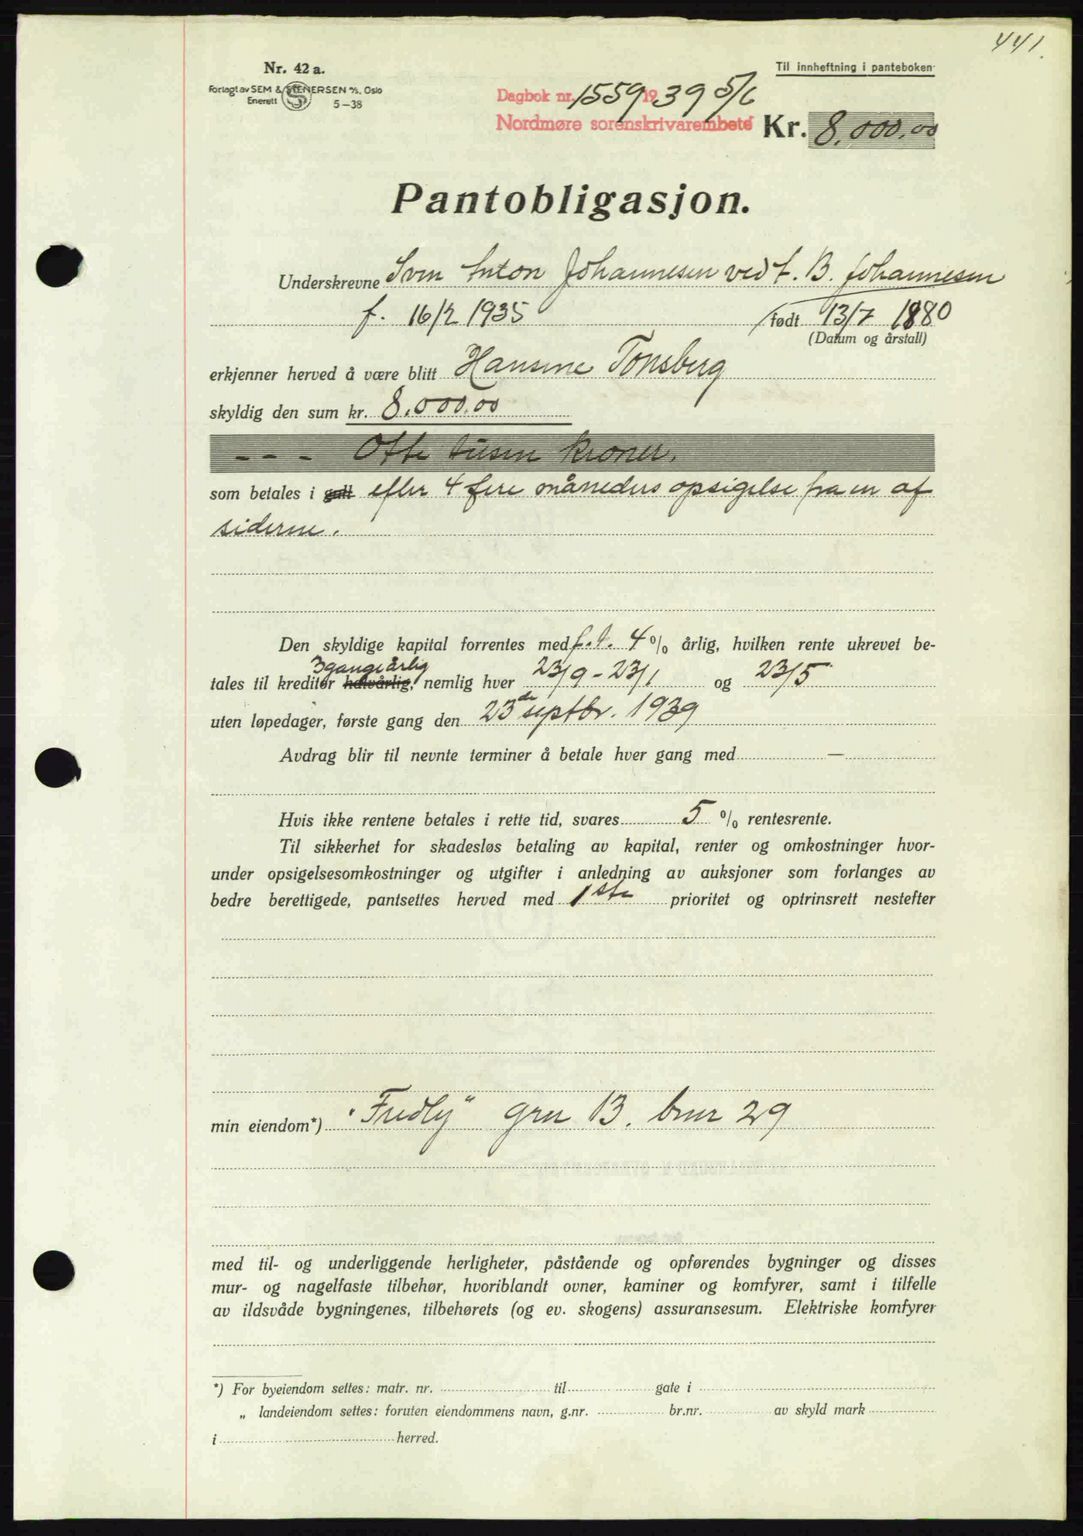 441.
Nr. 42 a.
Til innheftning i panteboken
Forlagt av SEM & STENERSEN A/S, Oslo
Enerett 5-38
Dagbok nr. 1559 1939 5/6
Nordmøre sorenskrivarembete
Kr. 8.000.00
Pantobligasjon.
Underskrevne Sven Anton Johannesen ved f. B. Johannesen
f. 16/2 1935 født 13/7 1880
(Datum og årstall)
erkjenner herved å være blitt Hansine Tonsberg
skyldig den sum kr. 8.000.00
--- Otte tusen kroner.
som betales i gull efter 4 fire måneders opsigelse fra en af
siderne.
Den skyldige kapital forrentes med f.t. 4 % årlig, hvilken rente ukrevet be-
3 gange årlig
tales til kreditor halvårlig, nemlig hver 23/9 - 23/1 og 23/5
uten løpedager, første gang den 23de septbr. 1939
Avdrag blir til nevnte terminer å betale hver gang med —
Hvis ikke rentene betales i rette tid, svares 5 % rentesrente.
Til sikkerhet for skadesløs betaling av kapital, renter og omkostninger hvor-
under opsigelsesomkostninger og utgifter i anledning av auksjoner som forlanges av
bedre berettigede, pantsettes herved med 1ste prioritet og optrinsrett nestefter
min eiendom*) "Fredly" gnr 13. bnr 29
med til- og underliggende herligheter, påstående og opførendes bygninger og disses
mur- og nagelfaste tilbehør, hvoriblandt ovner, kaminer og komfyrer, samt i tilfelle
av ildsvåde bygningenes, tilbehørets (og ev. skogens) assuransesum. Elektriske komfyrer
*) For byeiendom settes: matr. nr. til gate i
„ landeiendom settes: foruten eiendommens navn, g.nr. br.nr. av skyld mark
i herred.